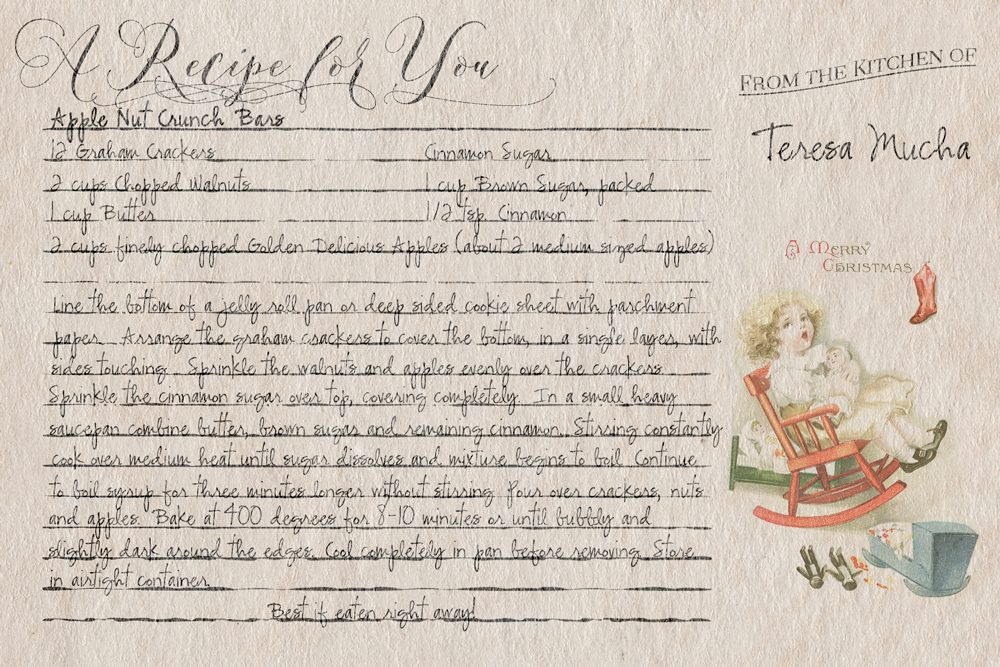 A Recipe for You
FROM THE KITCHEN OF
Teresa Mucha
Apple Nut Crunch Bars
12 Graham Crackers
Cinnamon Sugar
2 cups Chopped Walnuts
1 cup Brown Sugar, packed
1 cup Butter
1/2 tsp. Cinnamon
2 cups finely chopped Golden Delicious Apples (about 2 medium sized apples)
Line the bottom of a jelly roll pan or deep sided cookie sheet with parchment
paper. Arrange the graham crackers to cover the bottom, in a single layer, with
sides touching. Sprinkle the walnuts and apples evenly over the crackers.
Sprinkle the cinnamon sugar over top, covering completely. In a small heavy
saucepan combine butter, brown sugar and remaining cinnamon. Stirring constantly
cook over medium heat until sugar dissolves and mixture begins to boil. Continue
to boil syrup for three minutes longer without stirring. Pour over crackers, nuts
and apples. Bake at 400 degrees for 8-10 minutes or until bubbly and
slightly dark around the edges. Cool completely in pan before removing. Store
in airtight container.
Best if eaten right away!
A MERRY
CHRISTMAS